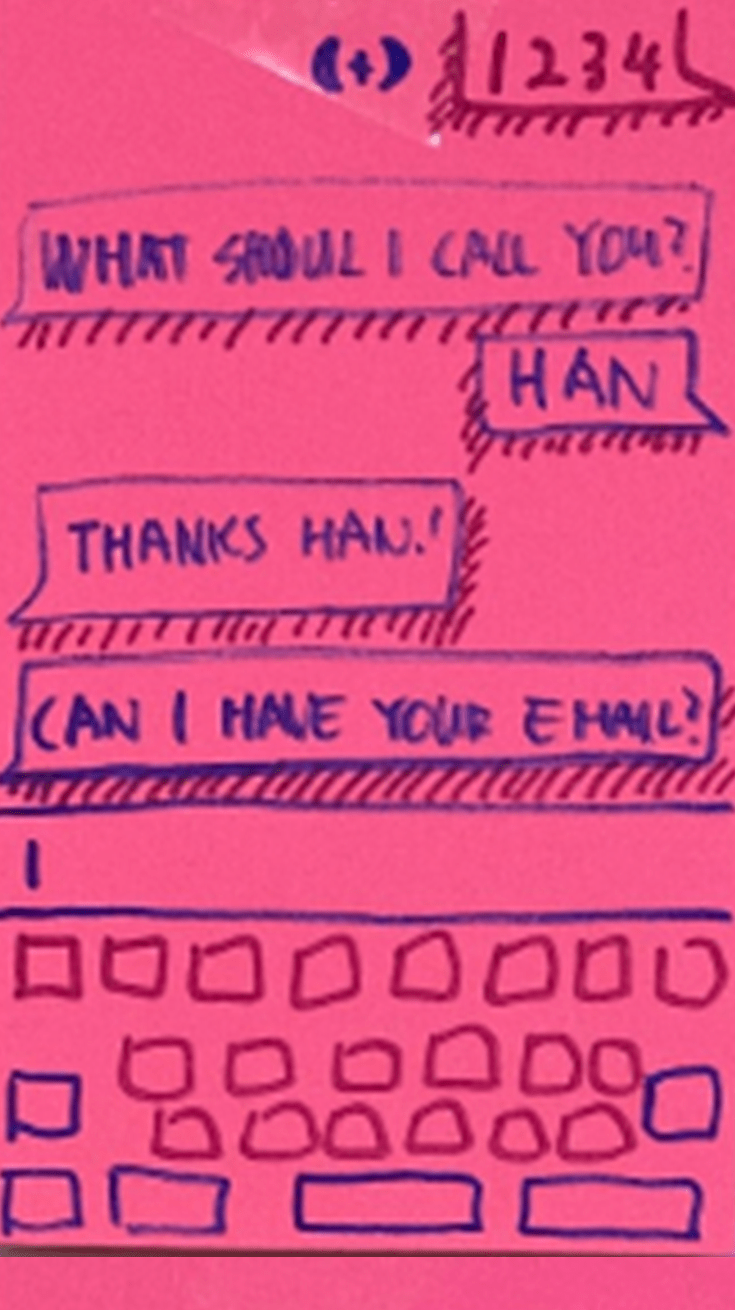 (+) 1234
WHAT SHOUL I CALL YOU?
HAN
THANKS HAN!
CAN I HAVE YOUR EMAIL?